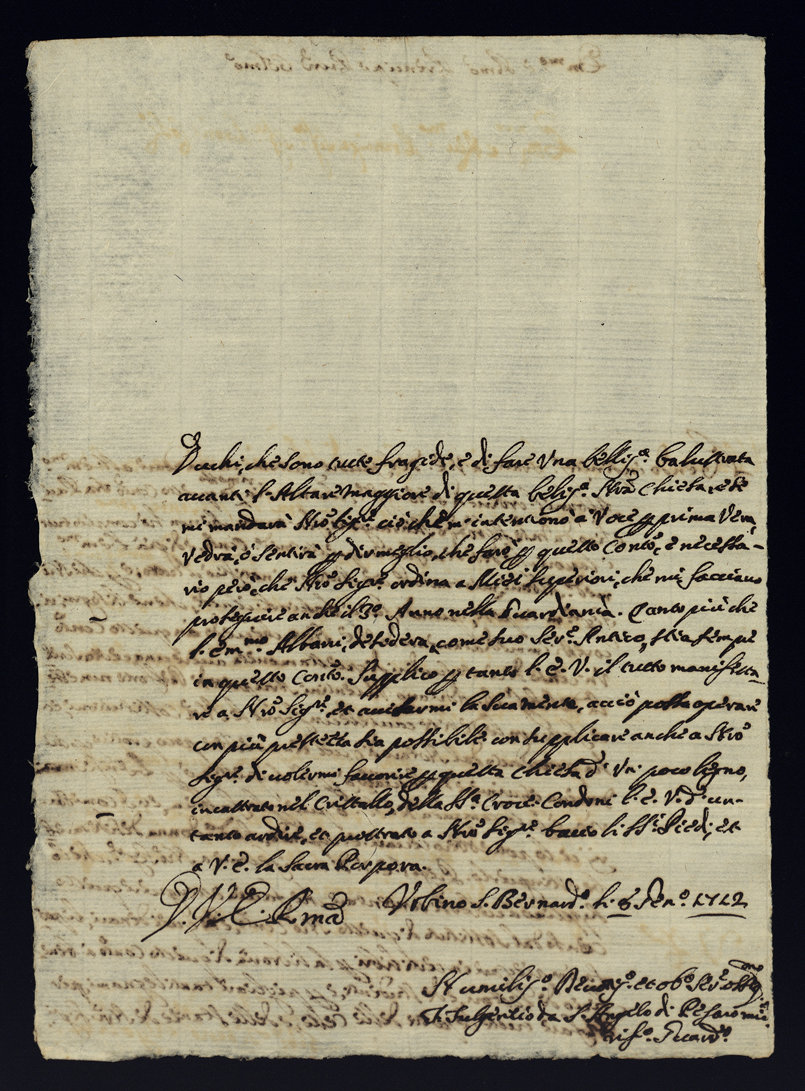 Duchi, che sono tutte fragide, e di fare Una belliss.ª balustrata
auanti l'Altare Maggiore di questa beliss.ª Nrã Chiesa, e se
mi mandarà Nrõ Sig.re ciò che m'intentionò à Voce p prima Vera,
Vedrà, ò sentirà p dir meglio, che farò p questo Conto, è necessa-
rio però, che Nrõ Sig.re ordina a Miei Superiori, che mi facciano
proseguire anche il 3º Anno nella Guardiania. Tanto più che
l'Em.mo Albani, desidera, come suo Ser.e Antico, stia sempre
in questo Conto. Supplico p tanto l'E. V. il tutto manifesta-
re a Nrõ Sig.re, et auisarmi la Sua mente, acciò possa operare
con più prestezza sia possibile con supplicare anche a Nrõ
Sig.re di uolermi fauorire p questa Chiesa d' Un poco legno,
incastrato nel Cristallo, della SS.ª Croce. Condoni l'E. V. d'un-
tanto ardire, et prostrato a Nrõ Sig.re bacio li SS.i Piedi, et
a V. E. la Sacra Porpora.
D. V. E. R.ma Vrbino S. Bernard.º li 8 Gen.º 1712
Humiliss.º Deuotiss.º et ob.º Ser.e
F. Fulgentio da S. Angelo di Pesaro
Guard.º